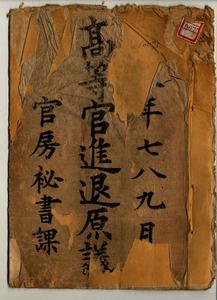 年七八九日
高等官進退原議
官房秘書課